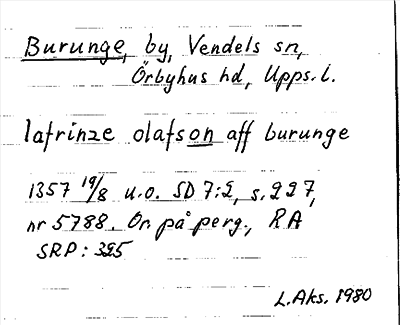 Burunge, by, Vendels sn,
Örbyhus hd, Upps. l.
lafrinze olafson aff burunge
1357 19/8 u.o. SD 7:2, s. 227,
nr 5788. Or. på perg., RA
SRP: 325
L. Aks. 1980